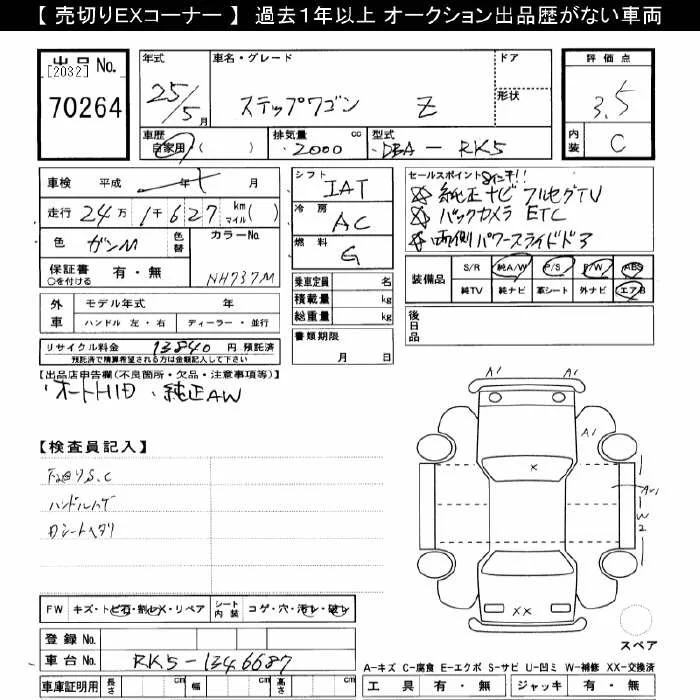 【 売切りEXコーナー 】 過去1年以上 オークション出品歴がない車両
出品 No.
[2032]
70264
年式 25/5月
車名・グレード ステップワゴン Z
ドア
形状
評価点 3.5
内装 C
車歴 自家用 ( )
排気量 2000 cc
型式 DBA-RK5
車検 平成 年 月
走行 24万1千627 km マイル ( )
色 ガンM 色替
カラーNo. NH737M
保証書 有・無
○を付ける
外車 モデル年式 年
ハンドル 左・右 ディーラー・並行
リサイクル料金 13840 円 預託済
預託済で精算希望される方は金額記入して下さい
シフト IAT
冷房 AC
燃料 G
乗車定員 名
積載量 kg
総重量 kg
書類期限
月 日
セールスポイント 8インチ!!
純正ナビ フルセグTV
バックカメラ ETC
両側パワースライドドア
装備品 S/R 純A/W P/S P/W ABS
純TV 純ナビ 革シート 外ナビ エアB
後日品
【出品店申告欄(不良箇所・欠品・注意事項等)】
オートHID、純正AW
【検査員記入】
下廻りS.C
ハンドルハゲ
Dシートヘタリ
A1 A1
A1
X
A1
W2
XX
スペア
FW キズ・トビ石・割レX・リペア
シート内装 コゲ・穴・汚レ・破レ
登録 No.
車台 No. RK5-1346687
車庫証明用 長さ cm 幅 cm 高さ cm
A-キズ C-腐食 E-エクボ S-サビ U-凹ミ W-補修 XX-交換済
工具 有・無 ジャッキ 有・無